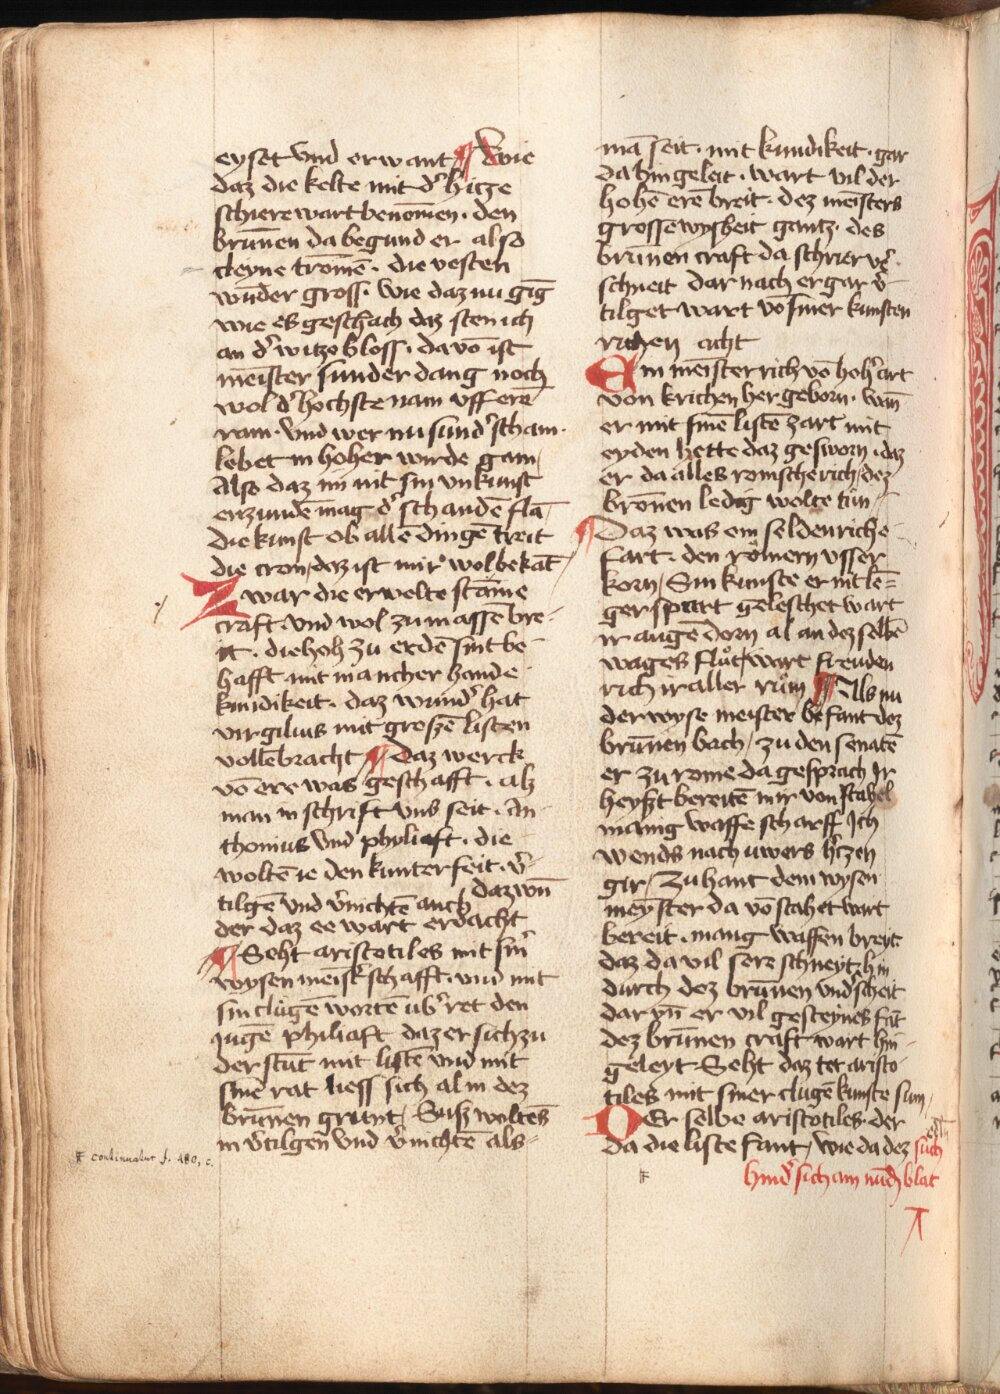 eyset vnd erwant ¶ Wie
daz die kelte mit d' hicze
schiere wart benom̄en · den
brūnen da begund er also
cleyne tromē · die vesten
wūder gross · wie daz nu gīg
wie es geschach daz sten ich
an d' witze bloss · da vō ist
meister sunder dang noch
wol d' hochste nam vff erē
ram · vnd wer nu sund' scham ·
lebet in hoher wirde gam /
Also daz im nit sin vnkunst
enzundē mag d' schandē flā
die kunst ob allē dingē treit
die cron / daz ist mir wol bekāt
Zwar die erwelte stāme
craft · vnd wol zu massē bre-
it · die hoh zu erdē sint be
hafft mit mancher hande
kundikeit · daz wund' hat
virgilius mit grossē listen
vollēbracht ¶ Daz werck
vō ere was geschafft · als
man in schrift vns seit · An
thonius vnd phyliaft · die
woltē ie den kunterfeit · v'-
tilgē vnd v'nichtē auch dazwn̄
der daz ee wart erdacht
¶ Seht aristotiles mit sin̄
wysen meist'schafft · vnd mit
sin clugē wortē ub'ret den
jugē philiaft daz er sich zu
der stūt mit listē vnd mit
sinē rat liess sich al in dez
brūnen grunt / Susz woltēs
in v'tilgen vnd v'nichte als-
mā seit · mit kundikeit · gar
da hin geleit · wart vil der
hohē erē breit · dez meisters
grossē wysheit gantz · des
brūnen craft da schrier vz ·
schneit dar nach er gar v'-
tilget wart vō siner kunsten
richen acht
Ein meister rich vō hoh' art
von krichen her geborn · wan̄
er mit sinē listē zart mit
eyden hette daz gesworn · daz
er da alles romsche rich / dez
bronen ledig wolte tun
¶ Daz was ein seldenriche
fart · den rômern vsser
korn / Sin kunste er nit lē-
ger spart geleschet wart
ir augē dorn al an dez selbē
wages flůt / wart freuden
rich ir aller rům ¶ Als nu
der wyse meister befant dez
brūnen bach / zu den senatē
er zu rome da gesprach Ir
heyszt bereitē mir von stahel
manig waffe scharff Ich
wends nach uwers h'czen
gir / Zu hant dem wysen
meyster da vō stahet wart
bereit · mang waffen breyt
daz da vil sere schneyt · hin
durch dez brūnen vnd'scheit
dar yn̄ er vil gesteynes fāt
dez brūnen craft wart hin
geleyt · Seht daz tet aristo
tiles mit siner clugē kunste sun /
DEr selbe aristotiles · der
da die liste fant / wie da dez such
hind' sich am nūdē blat
F continuatur f. 480, c.